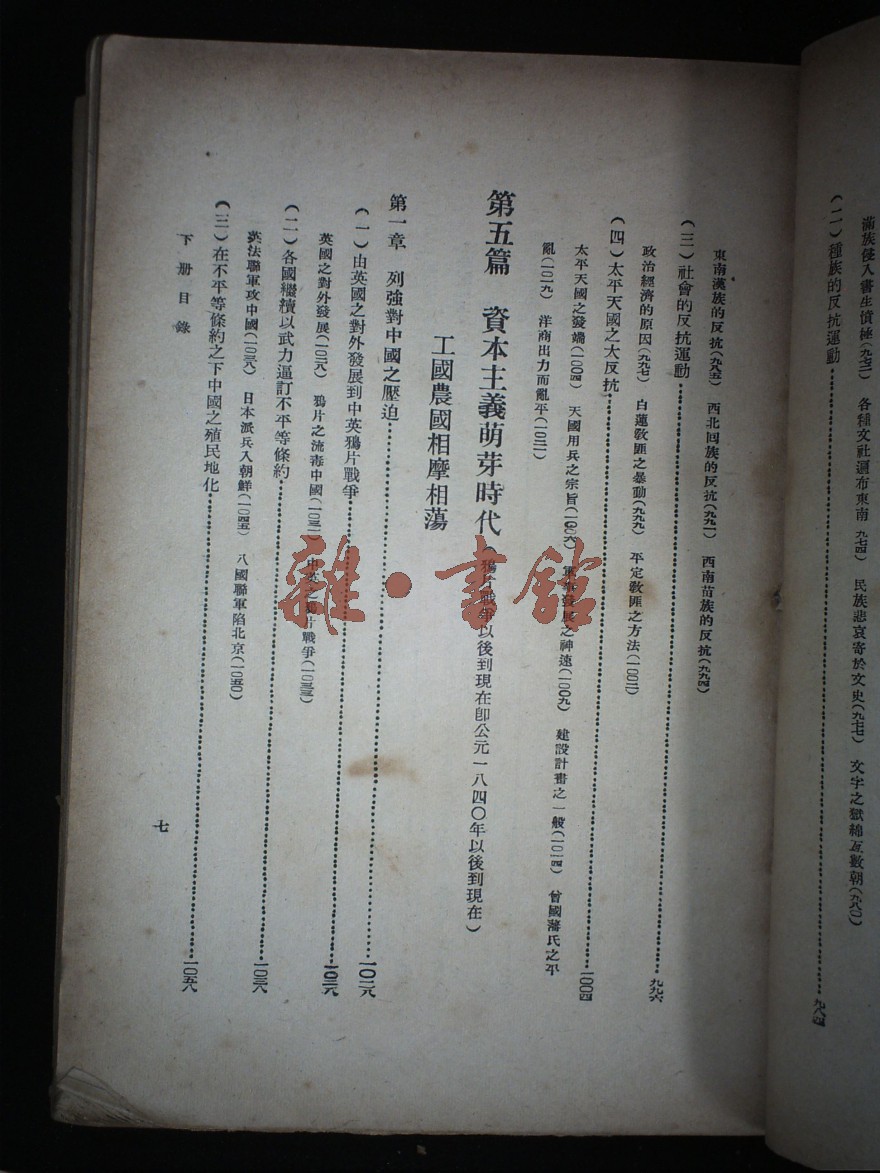 (二)種族的反抗運動……九八四
滿族侵入書生憤極(九七二) 各種文社遍布東南 九七四) 民族悲哀寄於文史(九七七) 文字之獄綿亙數朝(九八〇)
東南漢族的反抗(九八五) 西北回族的反抗(九九一) 西南苗族的反抗(九九四)
(三)社會的反抗運動……九九六
政治經濟的原因(九九七) 白蓮敎匪之暴動(九九九) 平定敎匪之方法(一〇〇二)
(四)太平天國之大反抗……一〇〇四
太平天國之發端(一〇〇四) 天國用兵之宗旨(一〇〇六) 軍事發展之神速(一〇〇九) 建設計畫之一般(一〇一四) 曾國藩氏之平
亂(一〇一九) 洋商出力而亂平(一〇二一)
第五篇 資本主義萌芽時代(鴉片戰爭以後到現在卽公元一八四〇年以後到現在)
工國農國相摩相蕩
第一章 列強對中國之壓迫……一〇二九
(一)由英國之對外發展到中英鴉片戰爭……一〇二九
英國之對外發展(一〇二八) 鴉片之流毒中國(一〇三一) 中英之鴉片戰爭(一〇三三)
(二)各國繼續以武力逼訂不平等條約……一〇三八
英法聯軍攻中國(一〇三八) 日本派兵入朝鮮(一〇四五) 八國聯軍陷北京(一〇五〇)
(三)在不平等條約之下中國之殖民地化……一〇五八
下册目錄
七
雜·書館